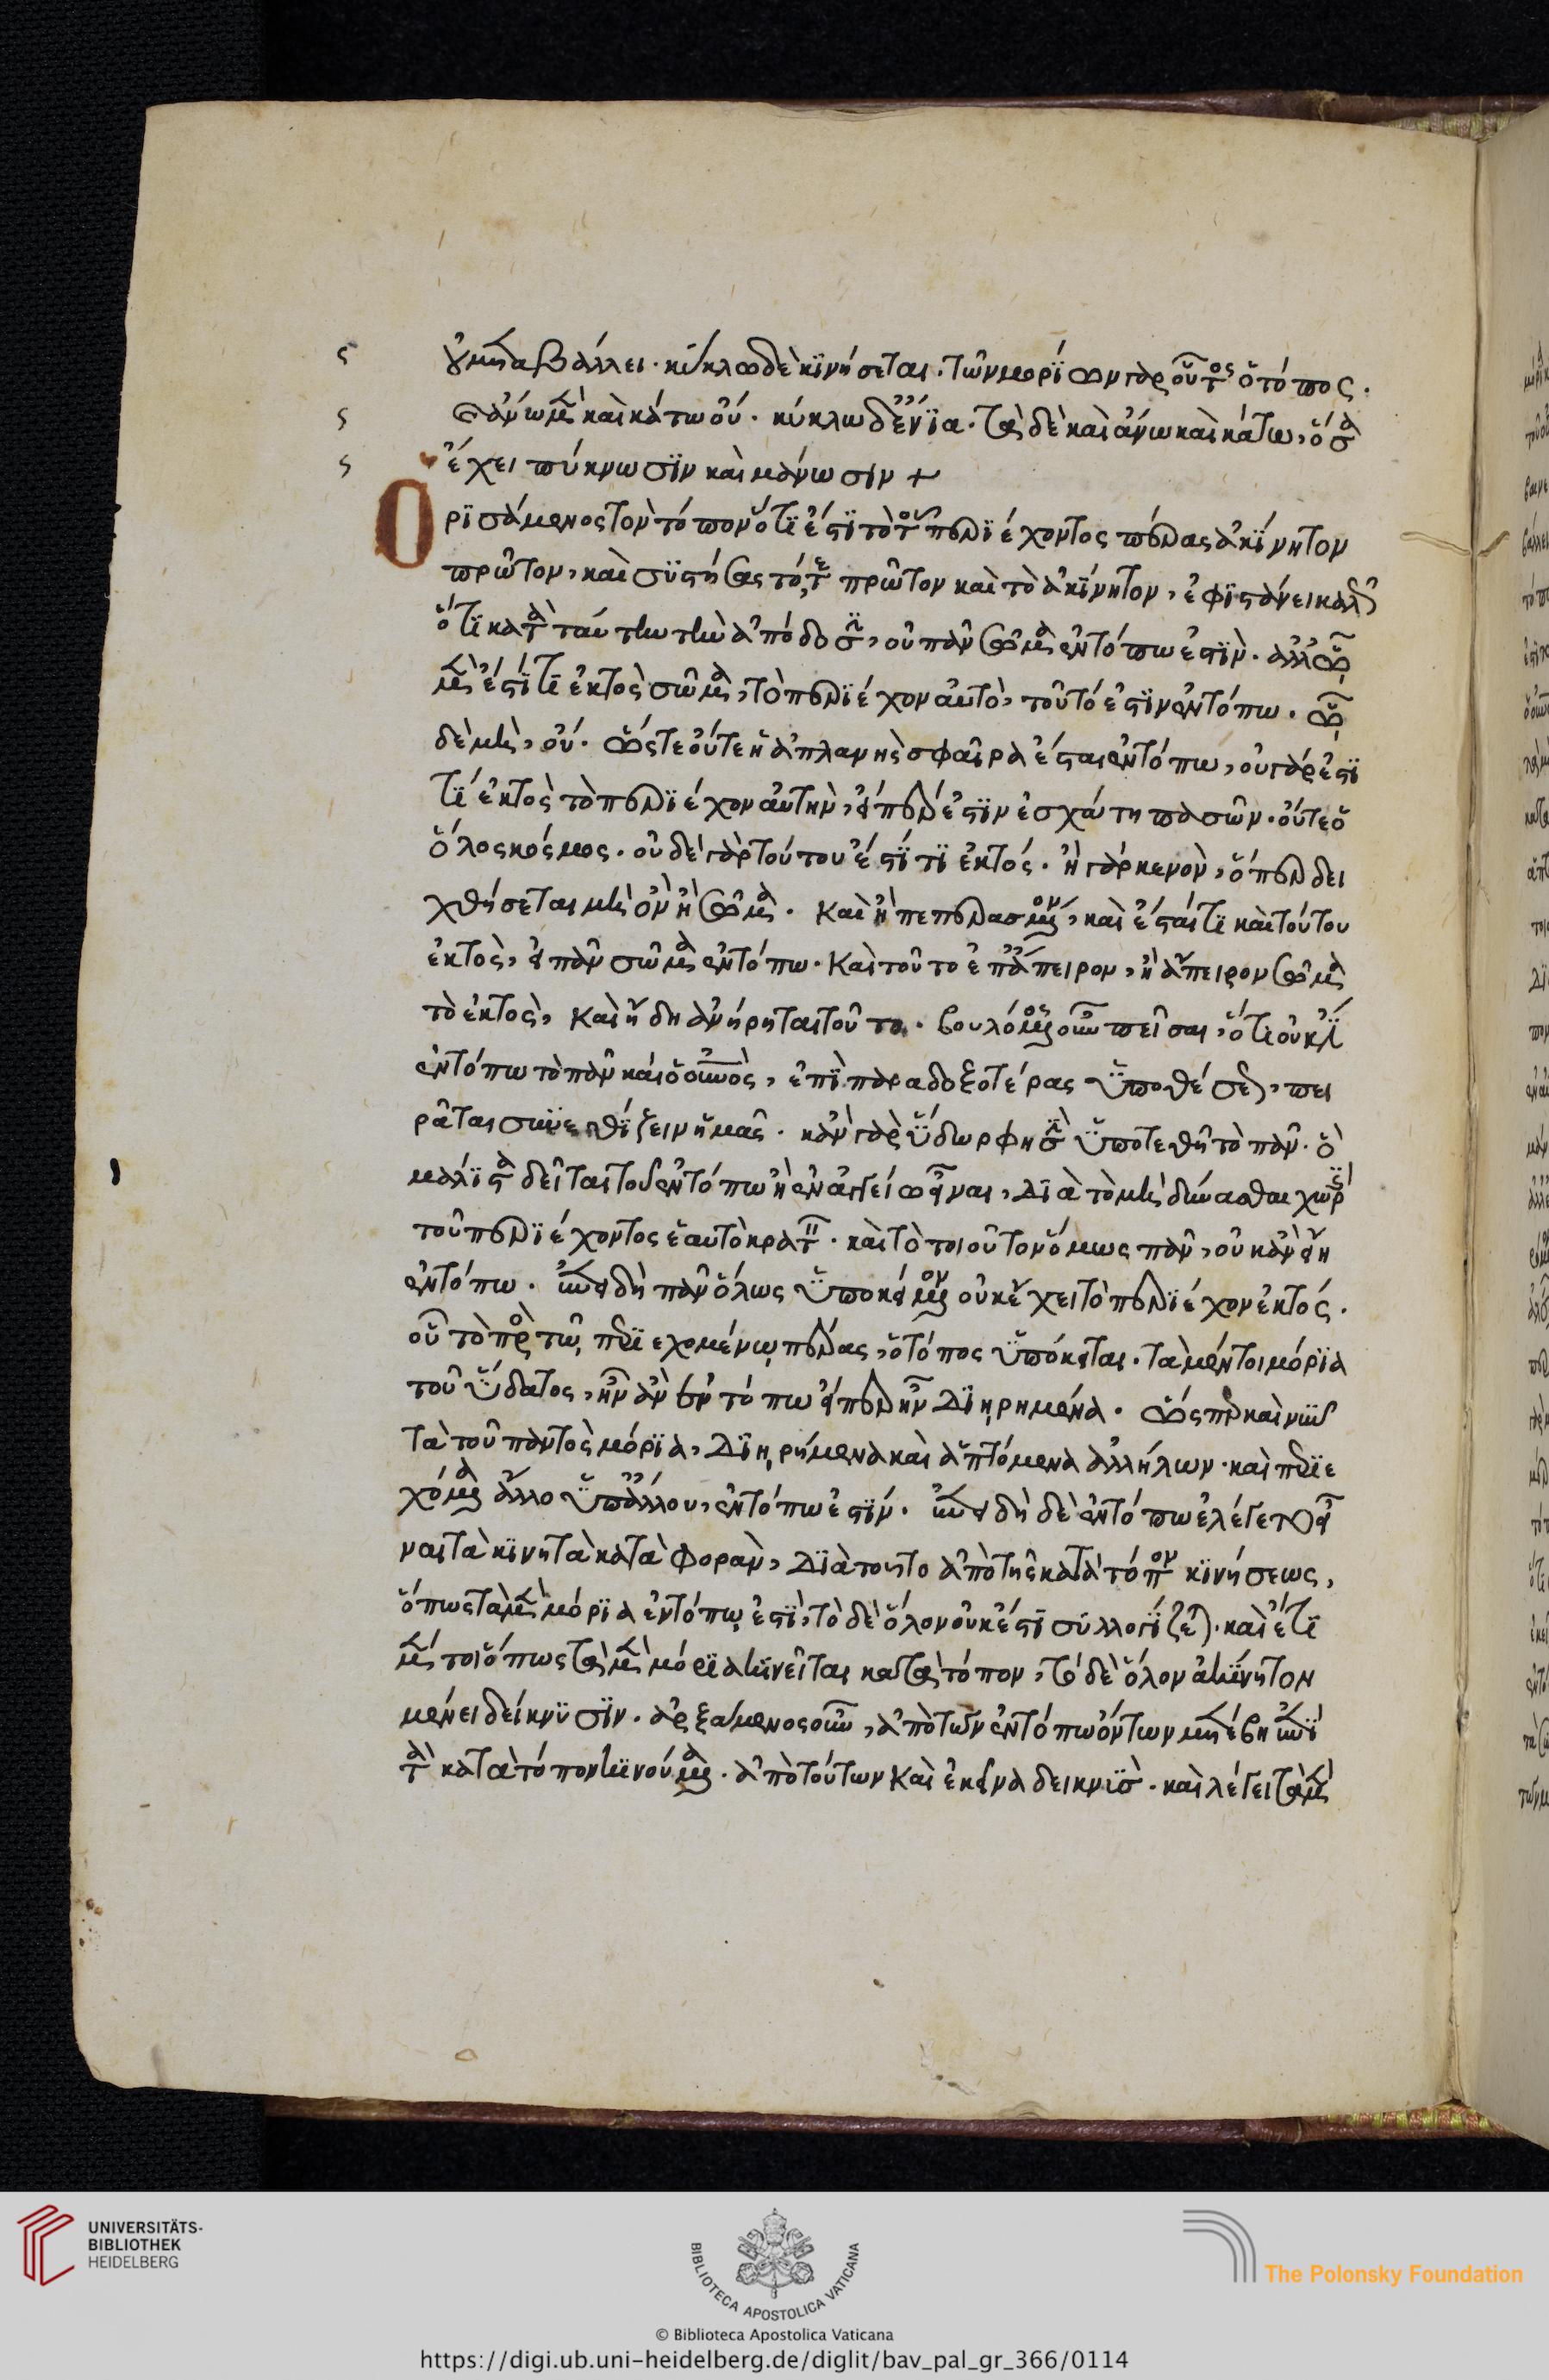 οὐ μεταβάλλει. κύκλω δὲ κινήσεται. τῶν μορίων γὰρ οὗτος ὁ τόπος.
ἄνω μὲν καὶ κάτω οὔ. κύκλω δ' ἔνια. τὰ δὲ καὶ ἄνω καὶ κάτω, ὅσα
ἔχει πύκνωσιν καὶ μάνωσιν +
Ὁρισάμενος τὸν τόπον ὅτι ἐστὶ τὸ τοῦ περιέχοντος πέρας ἀκίνητον
πρῶτον, καὶ συστήσας τό, τε πρῶτον καὶ τὸ ἀκίνητον, ἐφιστάνει καλῶς
ὅτι κατὰ ταύτην τὴν ἀπόδοσιν, οὐ πᾶν σῶμα ἐν τόπω ἐστίν. ἀλλ' ᾧ
μέν ἐστί τι ἐκτὸς σῶμα, τὸ περιέχον αὐτὸ, τοῦτό ἐστιν ἐν τόπω. ᾧ
δὲ μὴ, οὔ. ὥστε οὔτε ἡ ἀπλανὴς σφαῖρα ἔσται ἐν τόπω, οὐ γάρ ἐστί
τι ἐκτὸς τὸ περιέχον αὐτὴν, εἴπερ ἐστὶν ἐσχάτη πασῶν. οὔτε ὁ
ὅλος κόσμος. οὐδὲ γὰρ τούτου ἐστί τι ἐκτός. ἢ γὰρ κενὸν, ὅπερ δει
χθήσεται μὴ ὂν ἢ σῶμα. καὶ ἢ πεπερασμένον, καὶ ἔσται τι καὶ τούτου
ἐκτὸς, εἰ πᾶν σῶμα ἐν τόπω. καὶ τοῦτο ἐπ' ἄπειρον, ἢ ἄπειρον σῶμα
τὸ ἐκτὸς, καὶ ἤδη ἀνήρηται τοῦτο. βουλόμενος οὖν πεῖσαι, ὅτι οὐκ ἔστιν
ἐν τόπω τὸ πᾶν καὶ ὁ οὐρανὸς, ἐπὶ παραδοξοτέρας ὑποθέσεως, πει
ρᾶται συνεθίζειν ἡμᾶς. κἂν γὰρ ὕδωρ φησὶν ὑποτεθῆ τὸ πᾶν. ὃ
μάλιστα δεῖται τοῦ ἐν τόπω ἢ ἐν ἀγγείω εἶναι, διὰ τὸ μὴ δύνασθαι χωρὶς
τοῦ περιέχοντος ἑαυτὸ κρατεῖν. καὶ τὸ τοιοῦτον ὅμως πᾶν, οὐκ ἂν εἴη
ἐν τόπω. ἐπειδὴ πᾶν ὅλως ὑποκείμενον οὐκ ἔχει τὸ περιέχον ἐκτός.
οὗ τὸ πρὸς τῷ περιεχομένῳ πέρας, ὁ τόπος ὑπόκειται. τὰ μέντοι μόρια
τοῦ ὕδατος, ἦν ἂν ἐν τόπω εἴπερ ἦν διῃρημένα. ὥσπερ καὶ νῦν
τὰ τοῦ παντὸς μόρια, διῃρήμενα καὶ ἁπτόμενα ἀλλήλων. καὶ περιε
χόμενα ἄλλο ὑπ' ἄλλου, ἐν τόπω ἐστίν. ἐπειδὴ δὲ ἐν τόπω ἐλέγετο εἶ
ναι τὰ κινητὰ κατὰ φορὰν, διὰ τοῦτο ἀπὸ τῆς κατὰ τόπον κινήσεως,
ὅπως τὰ μὲν μόρια ἐν τόπῳ ἐστὶ, τὸ δὲ ὅλον οὐκ ἔστι συλλογίζεται. καὶ ἔτι
μέντοι ὅπως τὰ μὲν μόρια κινεῖται κατὰ τόπον, τὸ δὲ ὅλον ἀκίνητον
μένει δείκνυσιν. ἀρξάμενος οὖν, ἀπὸ τῶν ἐν τόπω ὄντων μετέβη ἐπὶ
τὰ κατὰ τόπον κινούμενα. ἀπὸ τούτων καὶ ἐκεῖνα δεικνὺς. καὶ λέγει τὰ μὲν
UNIVERSITÄTS-
BIBLIOTHEK
HEIDELBERG
BIBLIOTECA APOSTOLICA VATICANA
The Polonsky Foundation
© Biblioteca Apostolica Vaticana
https://digi.ub.uni-heidelberg.de/diglit/bav_pal_gr_366/0114